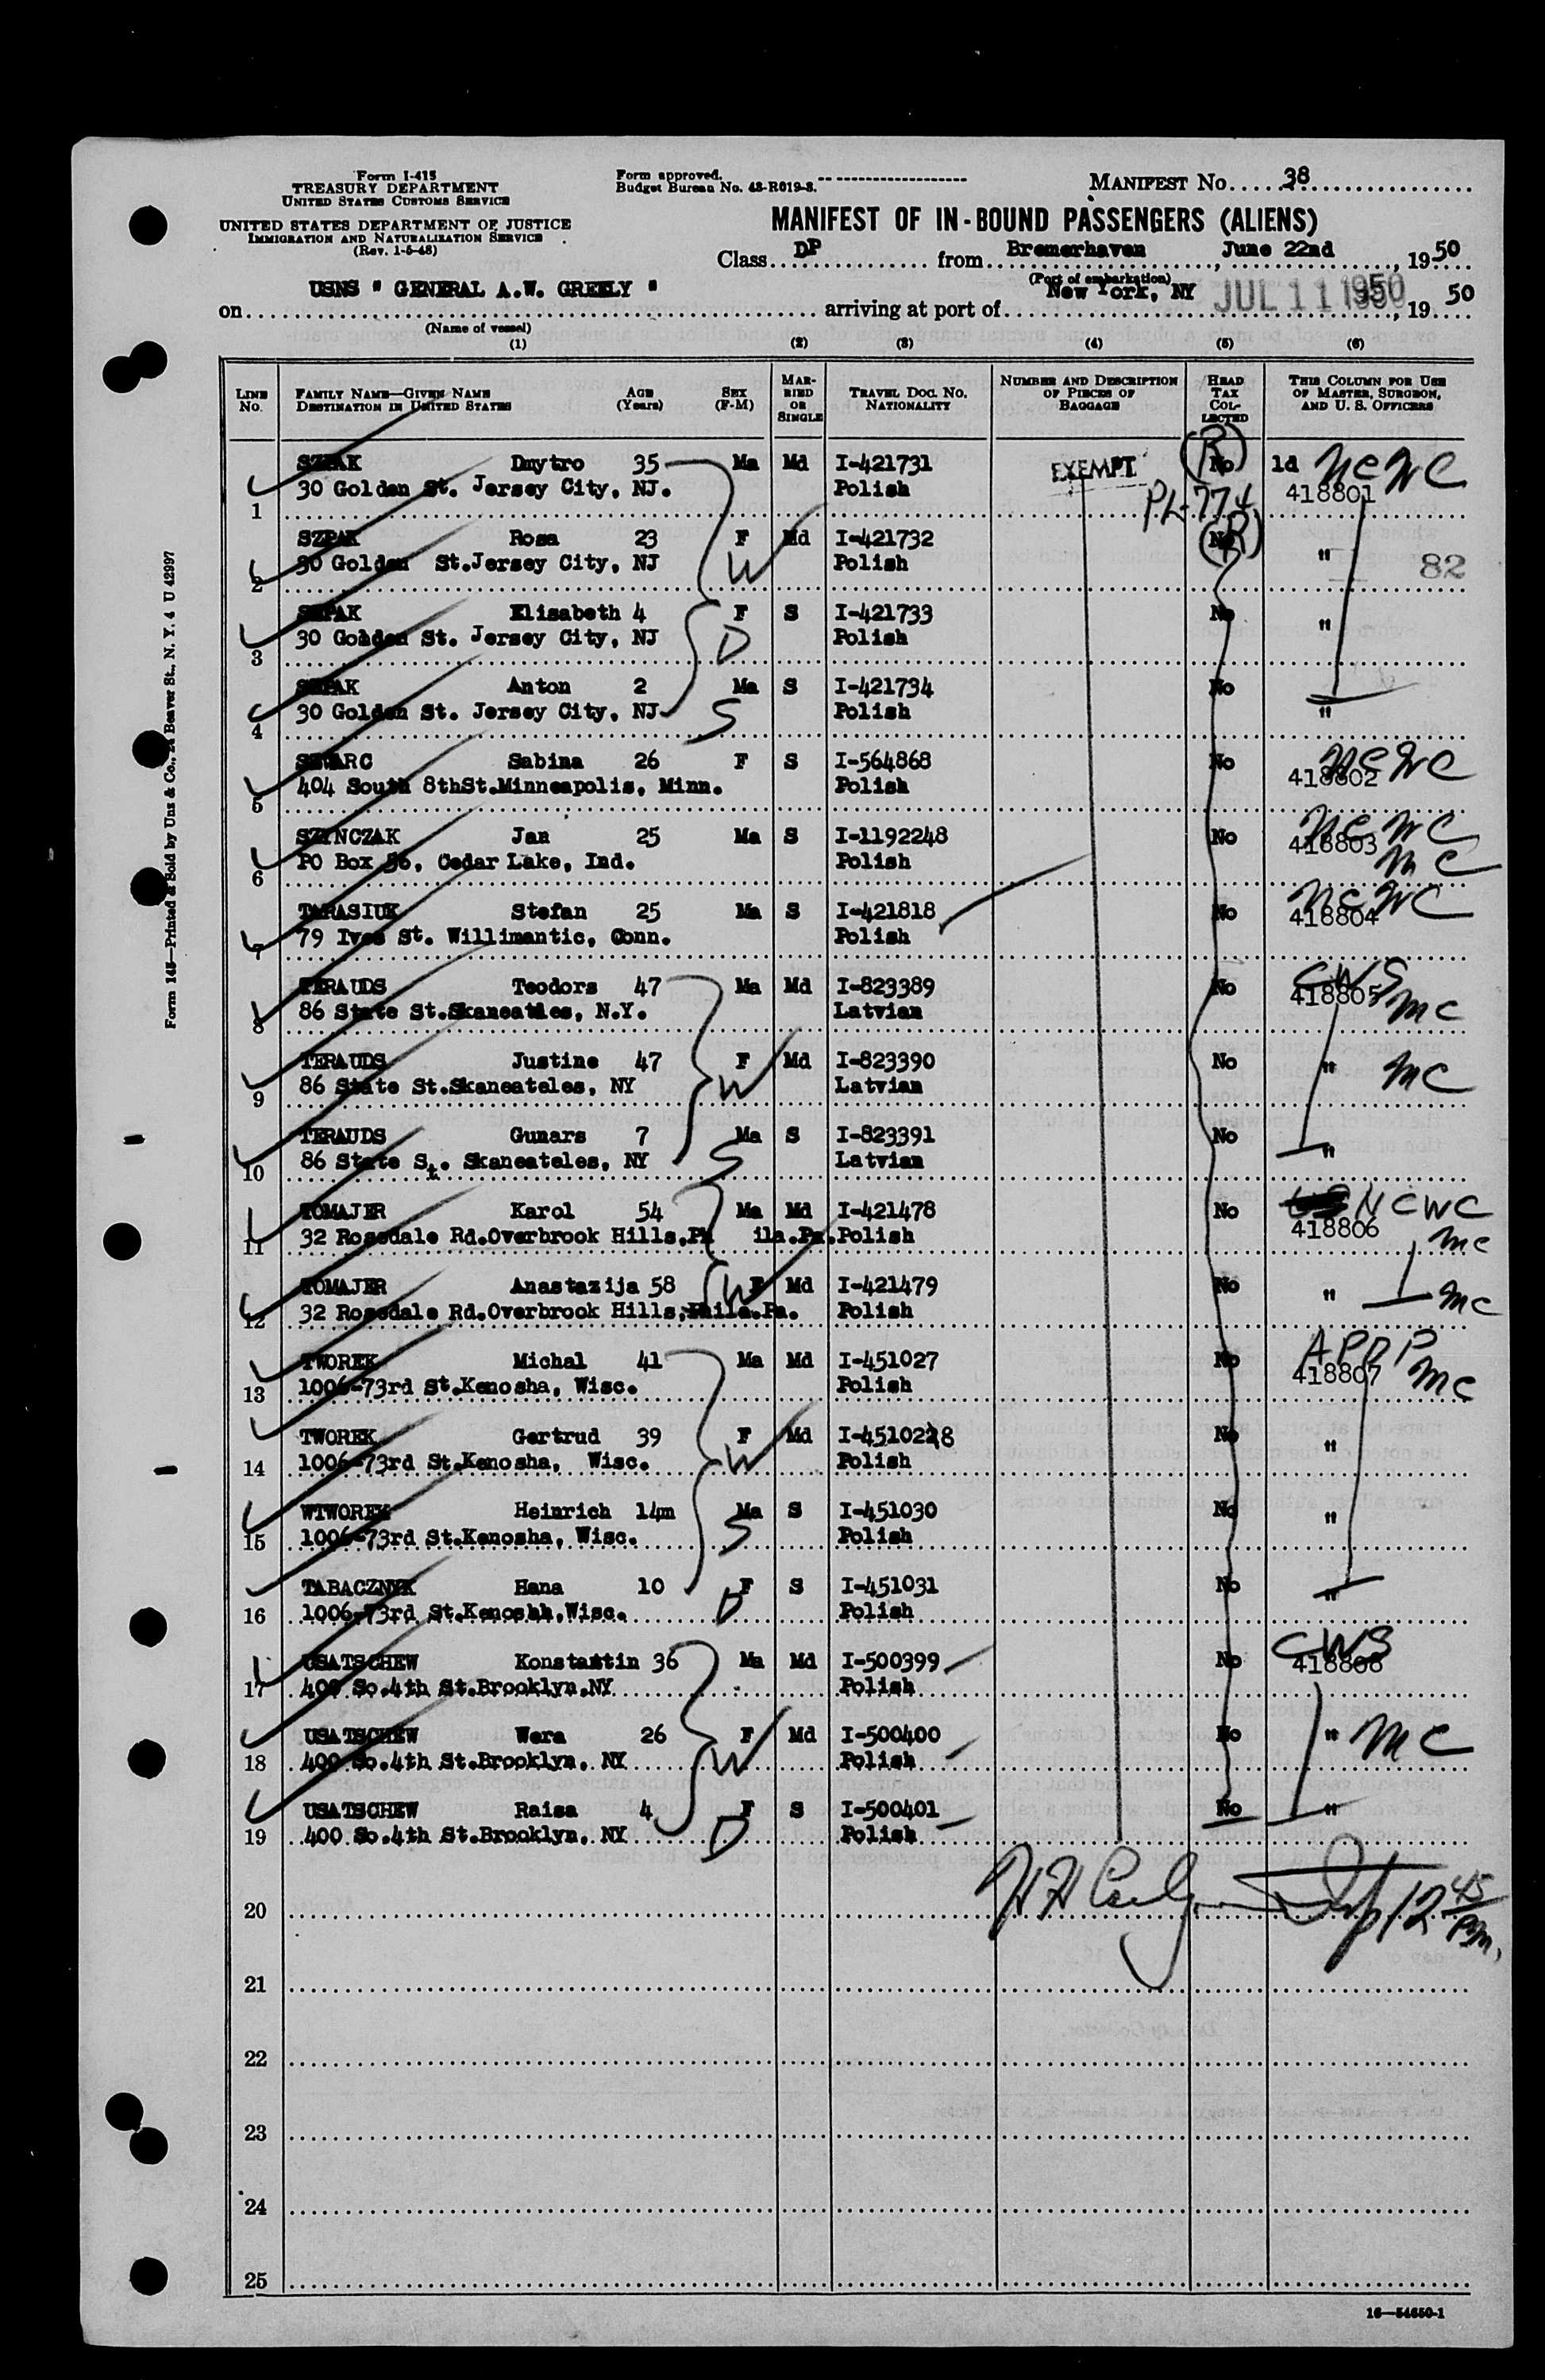 Form I-415
TREASURY DEPARTMENT
UNITED STATES CUSTOMS SERVICE
UNITED STATES DEPARTMENT OF JUSTICE
IMMIGRATION AND NATURALIZATION SERVICE
(Rev. 1-5-48)
Form approved.
Budget Bureau No. 43-R019-3.
MANIFEST No. 38
MANIFEST OF IN-BOUND PASSENGERS (ALIENS)
Class DP from Bremerhaven, June 22nd, 1950
(Port of embarkation)
on USNS " GENERAL A.W. GREELY " arriving at port of New York, NY JUL 11 1950, 19 50
(Name of vessel)
(1) (2) (3) (4) (5) (6)
LINE No. FAMILY NAME—GIVEN NAME DESTINATION IN UNITED STATES AGE (Years) SEX (F-M) MARRIED OR SINGLE TRAVEL DOC. NO. NATIONALITY NUMBER AND DESCRIPTION OF PIECES OF BAGGAGE HEAD TAX COLLECTED THIS COLUMN FOR USE OF MASTER, SURGEON, AND U. S. OFFICERS
SZPAK Dmytro 35 Ma Md I-421731 EXEMPT (R) No 1d NCWC
1 30 Golden St. Jersey City, NJ. Polish PL-774 418801
SZPAK Rosa 23 F Md I-421732 No (R) "
2 30 Golden St.Jersey City, NJ W Polish 82
SZPAK Elisabeth 4 F S I-421733 No "
3 30 Golden St. Jersey City, NJ D Polish
SZPAK Anton 2 Ma S I-421734 No "
4 30 Golden St. Jersey City, NJ S Polish
SZWARC Sabina 26 F S I-564868 No NCWC
5 404 South 8thSt.Minneapolis, Minn. Polish 418802
SZYNCZAK Jan 25 Ma S I-1192248 No NCWC 418803
6 PO Box 56, Cedar Lake, Ind. Polish MC
TARASIUK Stefan 25 Ma S I-421818 No NCWC
7 79 Ives St. Willimantic, Conn. Polish 418804
TERAUDS Teodors 47 Ma Md I-823389 No CWS 418805
8 86 State St.Skaneatles, N.Y. Latvian MC
TERAUDS Justine 47 F Md I-823390 No " MC
9 86 State St.Skaneateles, NY W Latvian
TERAUDS Gunars 7 Ma S I-823391 No "
10 86 State St. Skaneateles, NY S Latvian
TOMAJER Karol 54 Ma Md I-421478 No NCWC
11 32 Rosedale Rd.Overbrook Hills,Ph ila.Pa. Polish 418806 MC
TOMAJER Anastazija 58 F W Md I-421479 No " MC
12 32 Rosedale Rd.Overbrook Hills,Phila.Pa. Polish
TWOREK Michal 41 Ma Md I-451027 No APDP 418807
13 1006-73rd St.Kenosha, Wisc. Polish MC
TWOREK Gertrud 39 F Md I-451028 No "
14 1006-73rd St.Kenosha, Wisc. W Polish
WTWOREK Heinrich 14m Ma S I-451030 No "
15 1006-73rd St.Kenosha, Wisc. S Polish
TABACZNYK Hana 10 F S I-451031 No "
16 1006-73rd St.Kenoshh,Wisc. D Polish
USATSCHEW Konstantin 36 Ma Md I-500399 No CWS 418808
17 400 So.4th St.Brooklyn,NY Polish
USATSCHEW Wera 26 F Md I-500400 No " MC
18 400 So.4th St.Brooklyn, NY W Polish
USATSCHEW Raisa 4 F S I-500401 No "
19 400 So.4th St.Brooklyn, NY D Polish
20 Insp 12 45/PM.
21
22
23
24
25
16—54650-1
Form 145—Printed & Sold by Unz & Co., Beaver St., N. Y. 4 U 42997